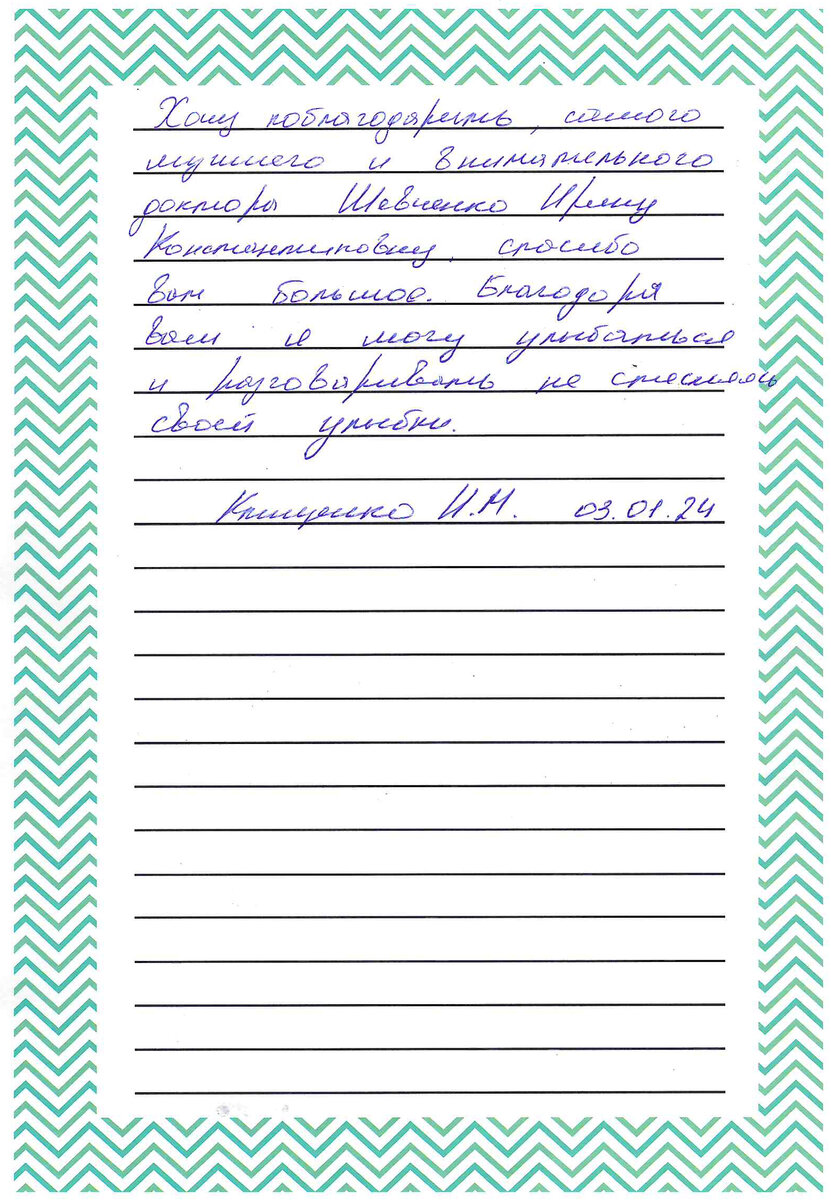 Хочу поблагодарить, самого
лучшего и внимательного
доктора Шевченко Ирину
Константиновну, спасибо
вам большое. Благодоря
вам я могу улыбаться
и разговаривать не стесняясь
своей улыбки.
И.Н. 03.01.24